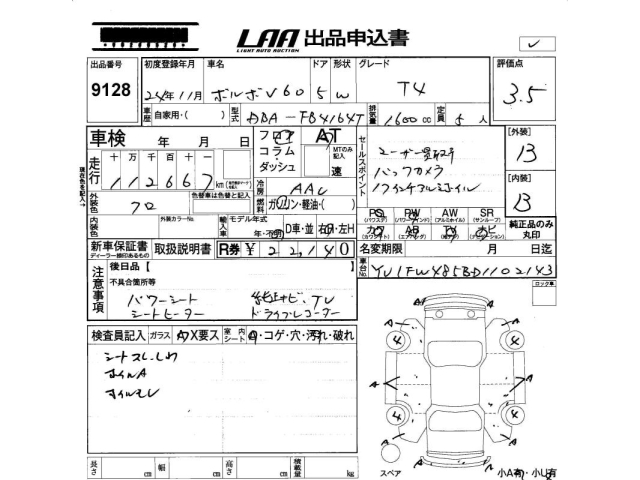 LAA 出品申込書
LIGHT AUTO AUCTION
出品番号 初度登録年月 車名 ドア 形状 グレード 評価点
9128 24年11月 ボルボV60 5 W T4 3.5
車歴 自家用・( ) 型式 DBA-FB4164T 排気量 1600cc 定員 5人
車検 年 月 日 フロア AT セールスポイント [外装]
コラム MTのみ記入 ユーザー買取車 B
走行 十 万 千 百 十 一 ダッシュ 速 バックカメラ
112667 km 冷房 AAC 17インチアルミホイル [内装]
現在色を記入→ 外装色 クロ 色替車は色替と記入 燃料 ガソリン・軽油・( ) B
内装色 外装カラーNo. 輸入車 モデル年式 D車・並 右H・左H PS PW AW SR
年・不明 カワ AB TV ナビ 純正品のみ
新車保証書 取扱説明書 R券 ¥ 22,140 名変期限 月 日迄 記入
ディーラー捺印あるもの 車台No. YV1FW485BD1102143
注意事項 後日品【 】 ロック車
不具合箇所等
パワーシート 純正ナビ、TV
シートヒーター ドライブレコーダー
検査員記入 ガラス A X要ス 室内シート コゲ・穴・汚れ・破れ
シートスレ、しわ
ホイルA
長さ cm 幅 cm 高さ cm 積載量 kg
スペア 小A有・小U有